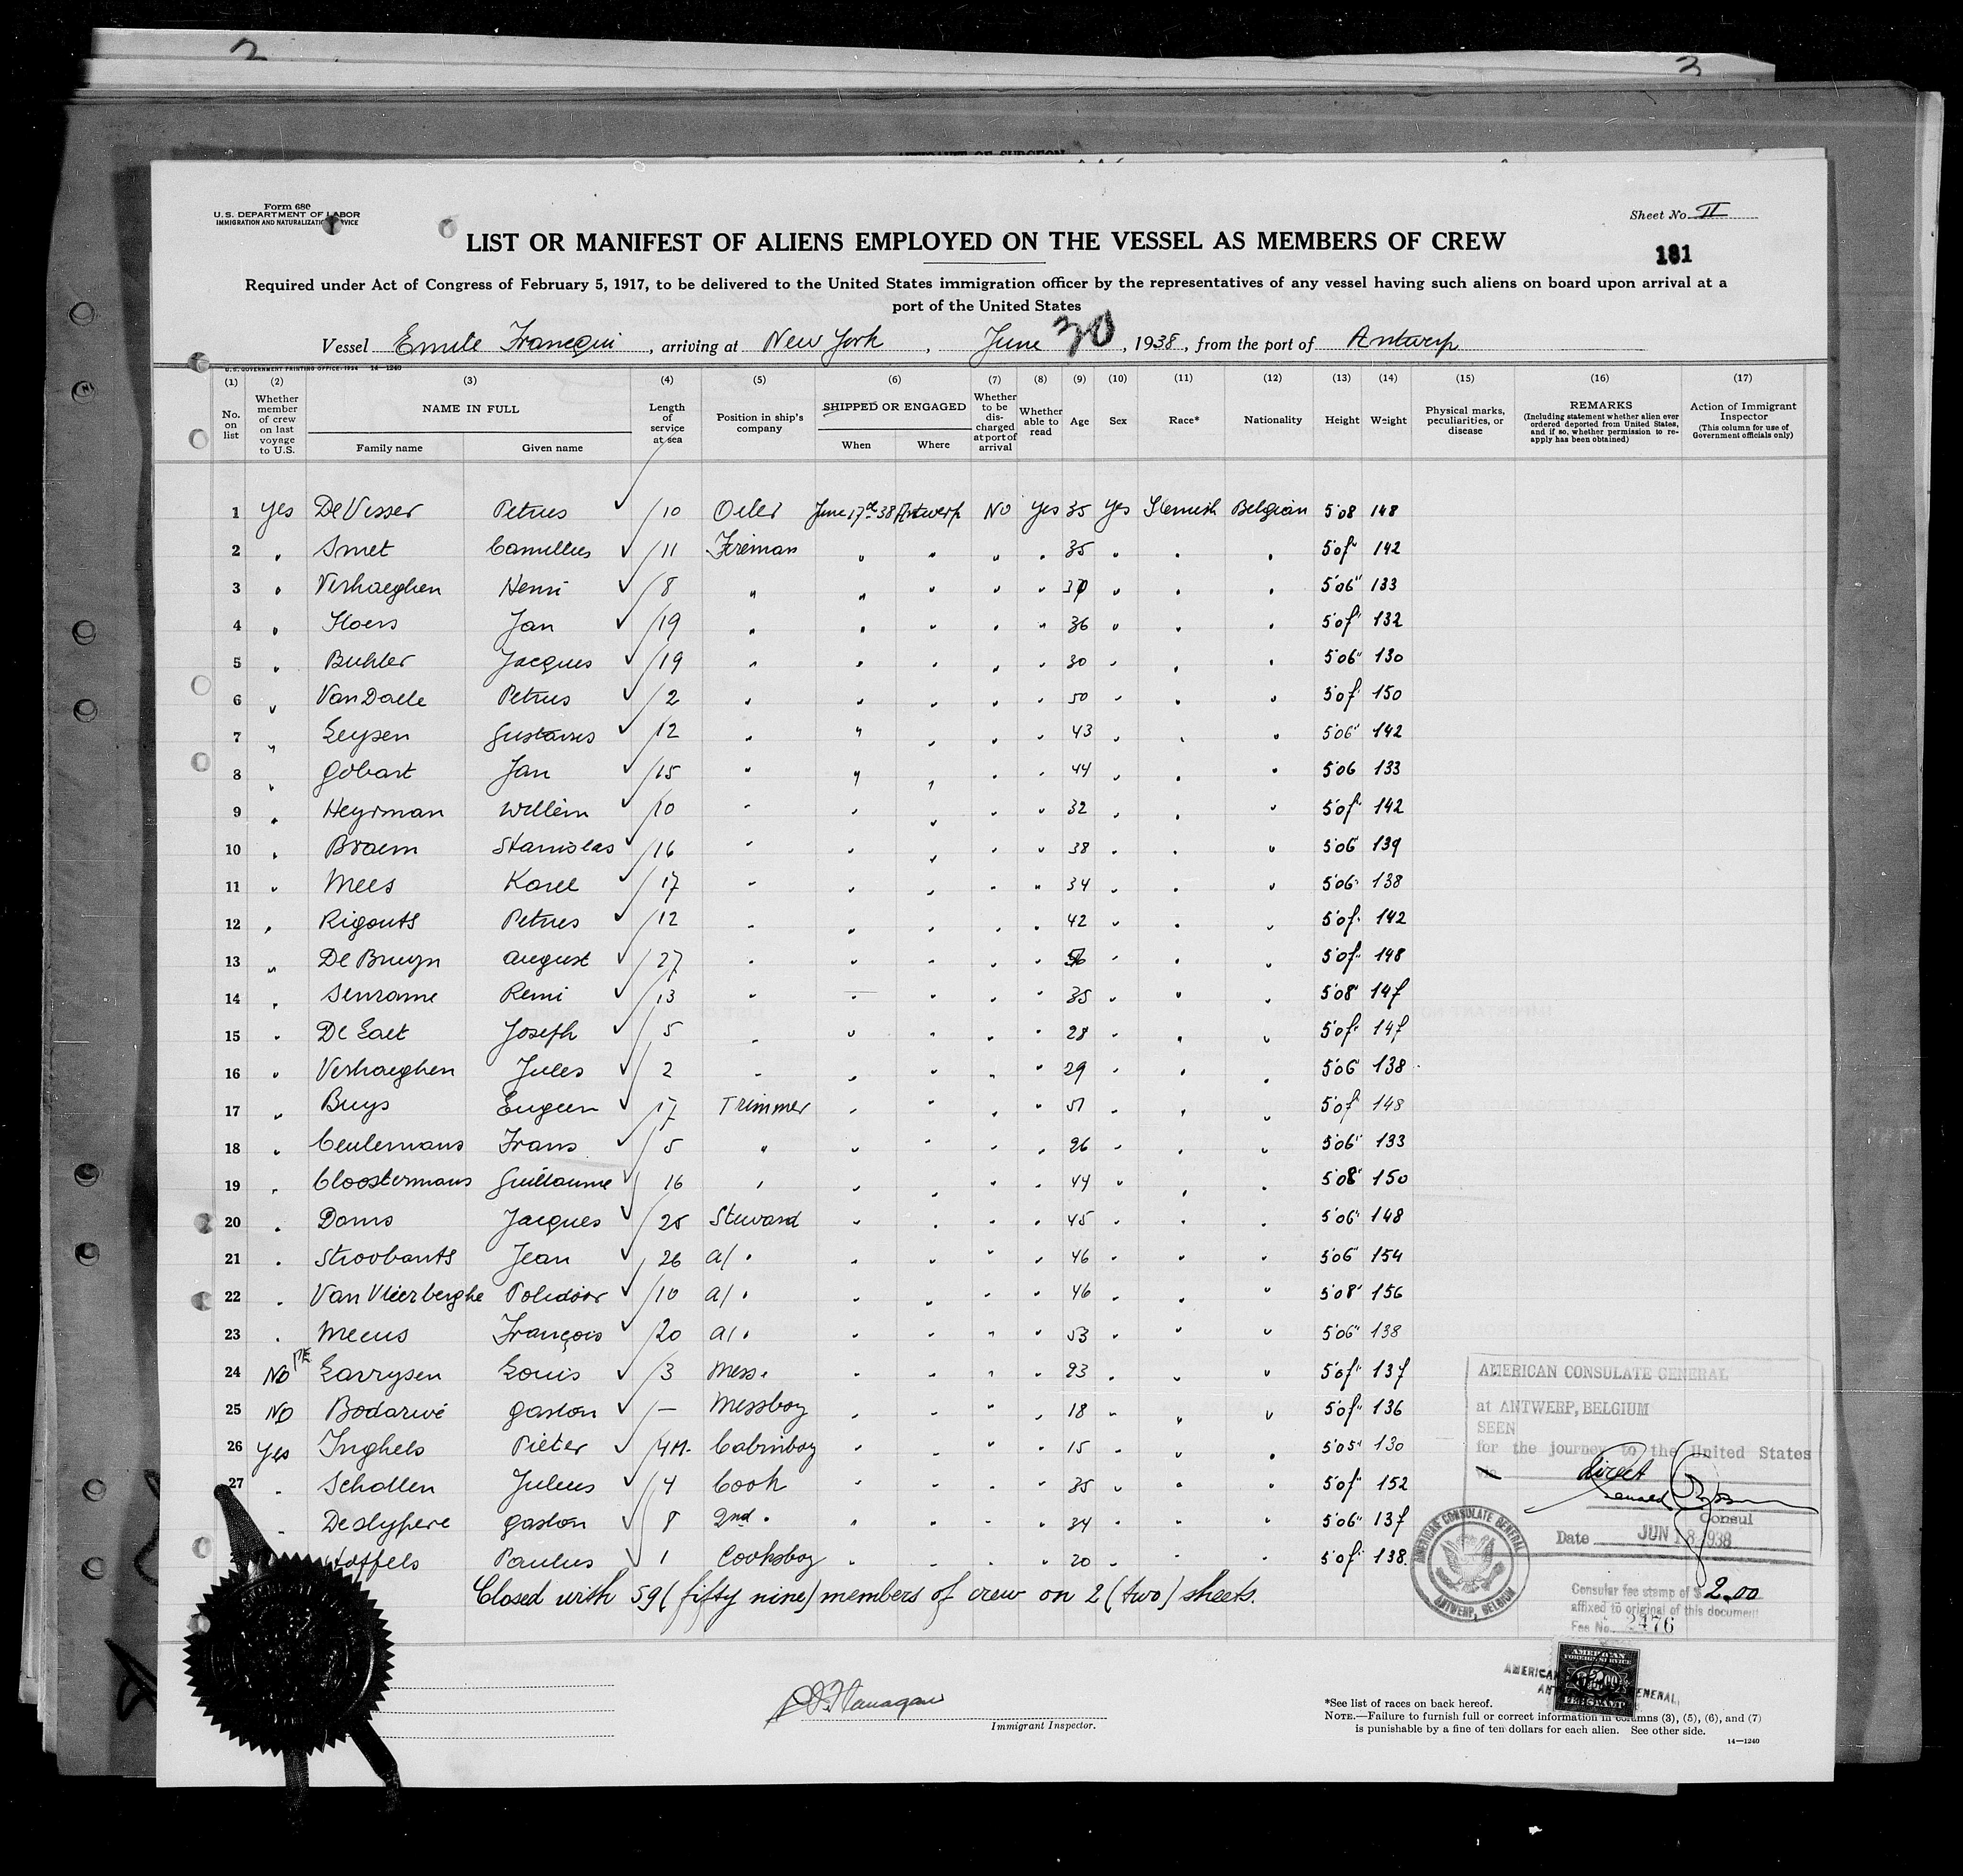 2 3
Form 680
U.S. DEPARTMENT OF LABOR
IMMIGRATION AND NATURALIZATION SERVICE
Sheet No. II
LIST OR MANIFEST OF ALIENS EMPLOYED ON THE VESSEL AS MEMBERS OF CREW
181
Required under Act of Congress of February 5, 1917, to be delivered to the United States immigration officer by the representatives of any vessel having such aliens on board upon arrival at a
port of the United States
Vessel Emile Francqui, arriving at New York, June 30, 1938, from the port of Antwerp
U.S. GOVERNMENT PRINTING OFFICE: 1934 14—1240
(1) (2) (3) (4) (5) (6) (7) (8) (9) (10) (11) (12) (13) (14) (15) (16) (17)
No. on list
Whether member of crew on last voyage to U.S.
NAME IN FULL
Family name Given name
Length of service at sea
Position in ship's company
SHIPPED OR ENGAGED
When Where
Whether to be discharged at port of arrival
Whether able to read
Age Sex Race* Nationality Height Weight
Physical marks, peculiarities, or disease
REMARKS
(Including statement whether alien ever ordered deported from United States, and if so, whether permission to reapply has been obtained)
Action of Immigrant Inspector
(This column for use of Government officials only)
1 Yes De Visser Petrus ✓ 10 Oiler June 17th 38 Antwerp No Yes 35 Yes Flemish Belgian 5'08 148
2 " Smet Camillus ✓ 11 Fireman " " " " 35 " " " 5'07" 142
3 " Verhaeghen Henri ✓ 8 " " " " " " " " 5'06" 133
4 " Floers Jan ✓ 19 " " " " " 36 " " " 5'07" 132
5 " Buhler Jacques ✓ 19 " " " " " 30 " " " 5'06" 130
6 " Van Daele Petrus ✓ 2 " " " " " 50 " " " 5'07" 150
7 " Leysen Gustavus ✓ 12 " " " " " 43 " " " 5'06" 142
8 " Gobart Jan ✓ 15 " " " " " 44 " " " 5'06 133
9 " Heyrman Willem ✓ 10 " " " " " 32 " " " 5'07" 142
10 " Braem Stanislas ✓ 16 " " " " " 38 " " " 5'06 139
11 " Mees Karel ✓ 17 " " " " " 34 " " " 5'06" 138
12 " Rigouts Petrus ✓ 12 " " " " " 42 " " " 5'07" 142
13 " De Bruyn August ✓ 27 " " " " " " " " 5'07" 148
14 " Senrame Remi ✓ 13 " " " " " 35 " " " 5'08" 147
15 " De Laet Joseph ✓ 5 " " " " " 28 " " " 5'07" 147
16 " Verhaeghen Jules ✓ 2 " " " " " 29 " " " 5'06 138
17 " Buys Eugeen ✓ 17 Trimmer " " " " 51 " " " 5'07" 148
18 " Ceulemans Frans ✓ 5 " " " " " 26 " " " 5'06" 133
19 " Cloostermans Guillaume ✓ 16 " " " " " 44 " " " 5'08" 150
20 " Doms Jacques ✓ 25 Steward " " " " 45 " " " 5'06" 148
21 " Stroobants Jean ✓ 26 a/ " " " " " 46 " " " 5'06" 154
22 " Van Vlierberghe Polidoor ✓ 10 a/ " " " " " 46 " " " 5'08" 156
23 " Meeus François ✓ 20 a/ " " " " " 53 " " " 5'06" 138
24 No Larrysen Louis ✓ 3 Mess " " " " " 23 " " " 5'07" 137
25 No Bodarwé Gaston ✓ — Messboy " " " " 18 " " " 5'07" 136
26 Yes Inghels Pieter ✓ 4M. Cabinboy " " " " 15 " " " 5'05" 130
27 " Schollen Julius ✓ 4 Cook " " " " 35 " " " 5'07" 152
" Deslypere Gaston ✓ 8 2nd " " " " " 34 " " " 5'06" 137
Hoffels Paulus ✓ 1 Cooksboy " " " " 20 " " " 5'07" 138.
Closed with 59 (fifty nine) members of crew on 2 (two) sheets.
AMERICAN CONSULATE GENERAL
at ANTWERP, BELGIUM
SEEN
for the journey to the United States
via direct
Consul
Date JUN 18 1938
AMERICAN CONSULATE GENERAL
ANTWERP, BELGIUM
Consular fee stamp of $2.00
affixed to original of this document
Fee No. 2476
AMERICAN FOREIGN SERVICE
Immigrant Inspector.
*See list of races on back hereof.
NOTE.—Failure to furnish full or correct information in columns (3), (5), (6), and (7)
is punishable by a fine of ten dollars for each alien. See other side.
14—1240